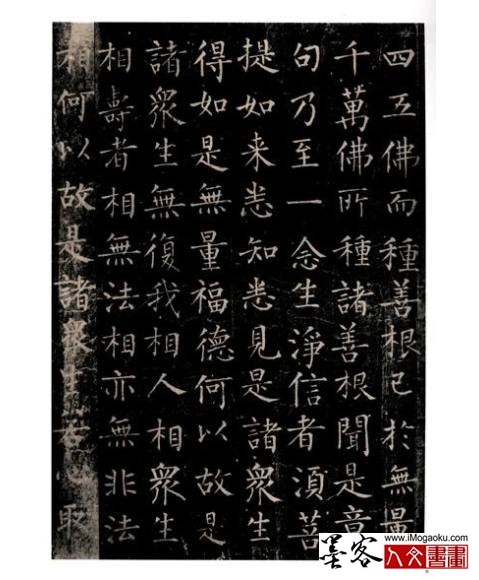 四五佛而種善根已於無量
千萬佛所種諸善根聞是章
句乃至一念生淨信者須菩
提如来悉知悉見是諸衆生
得如是無量福德何以故是
諸衆生無復我相人相衆生
相壽者相無法相亦無非法
相何以故是諸衆生若心取
墨客
www.iMogaoku.com
人文書畫